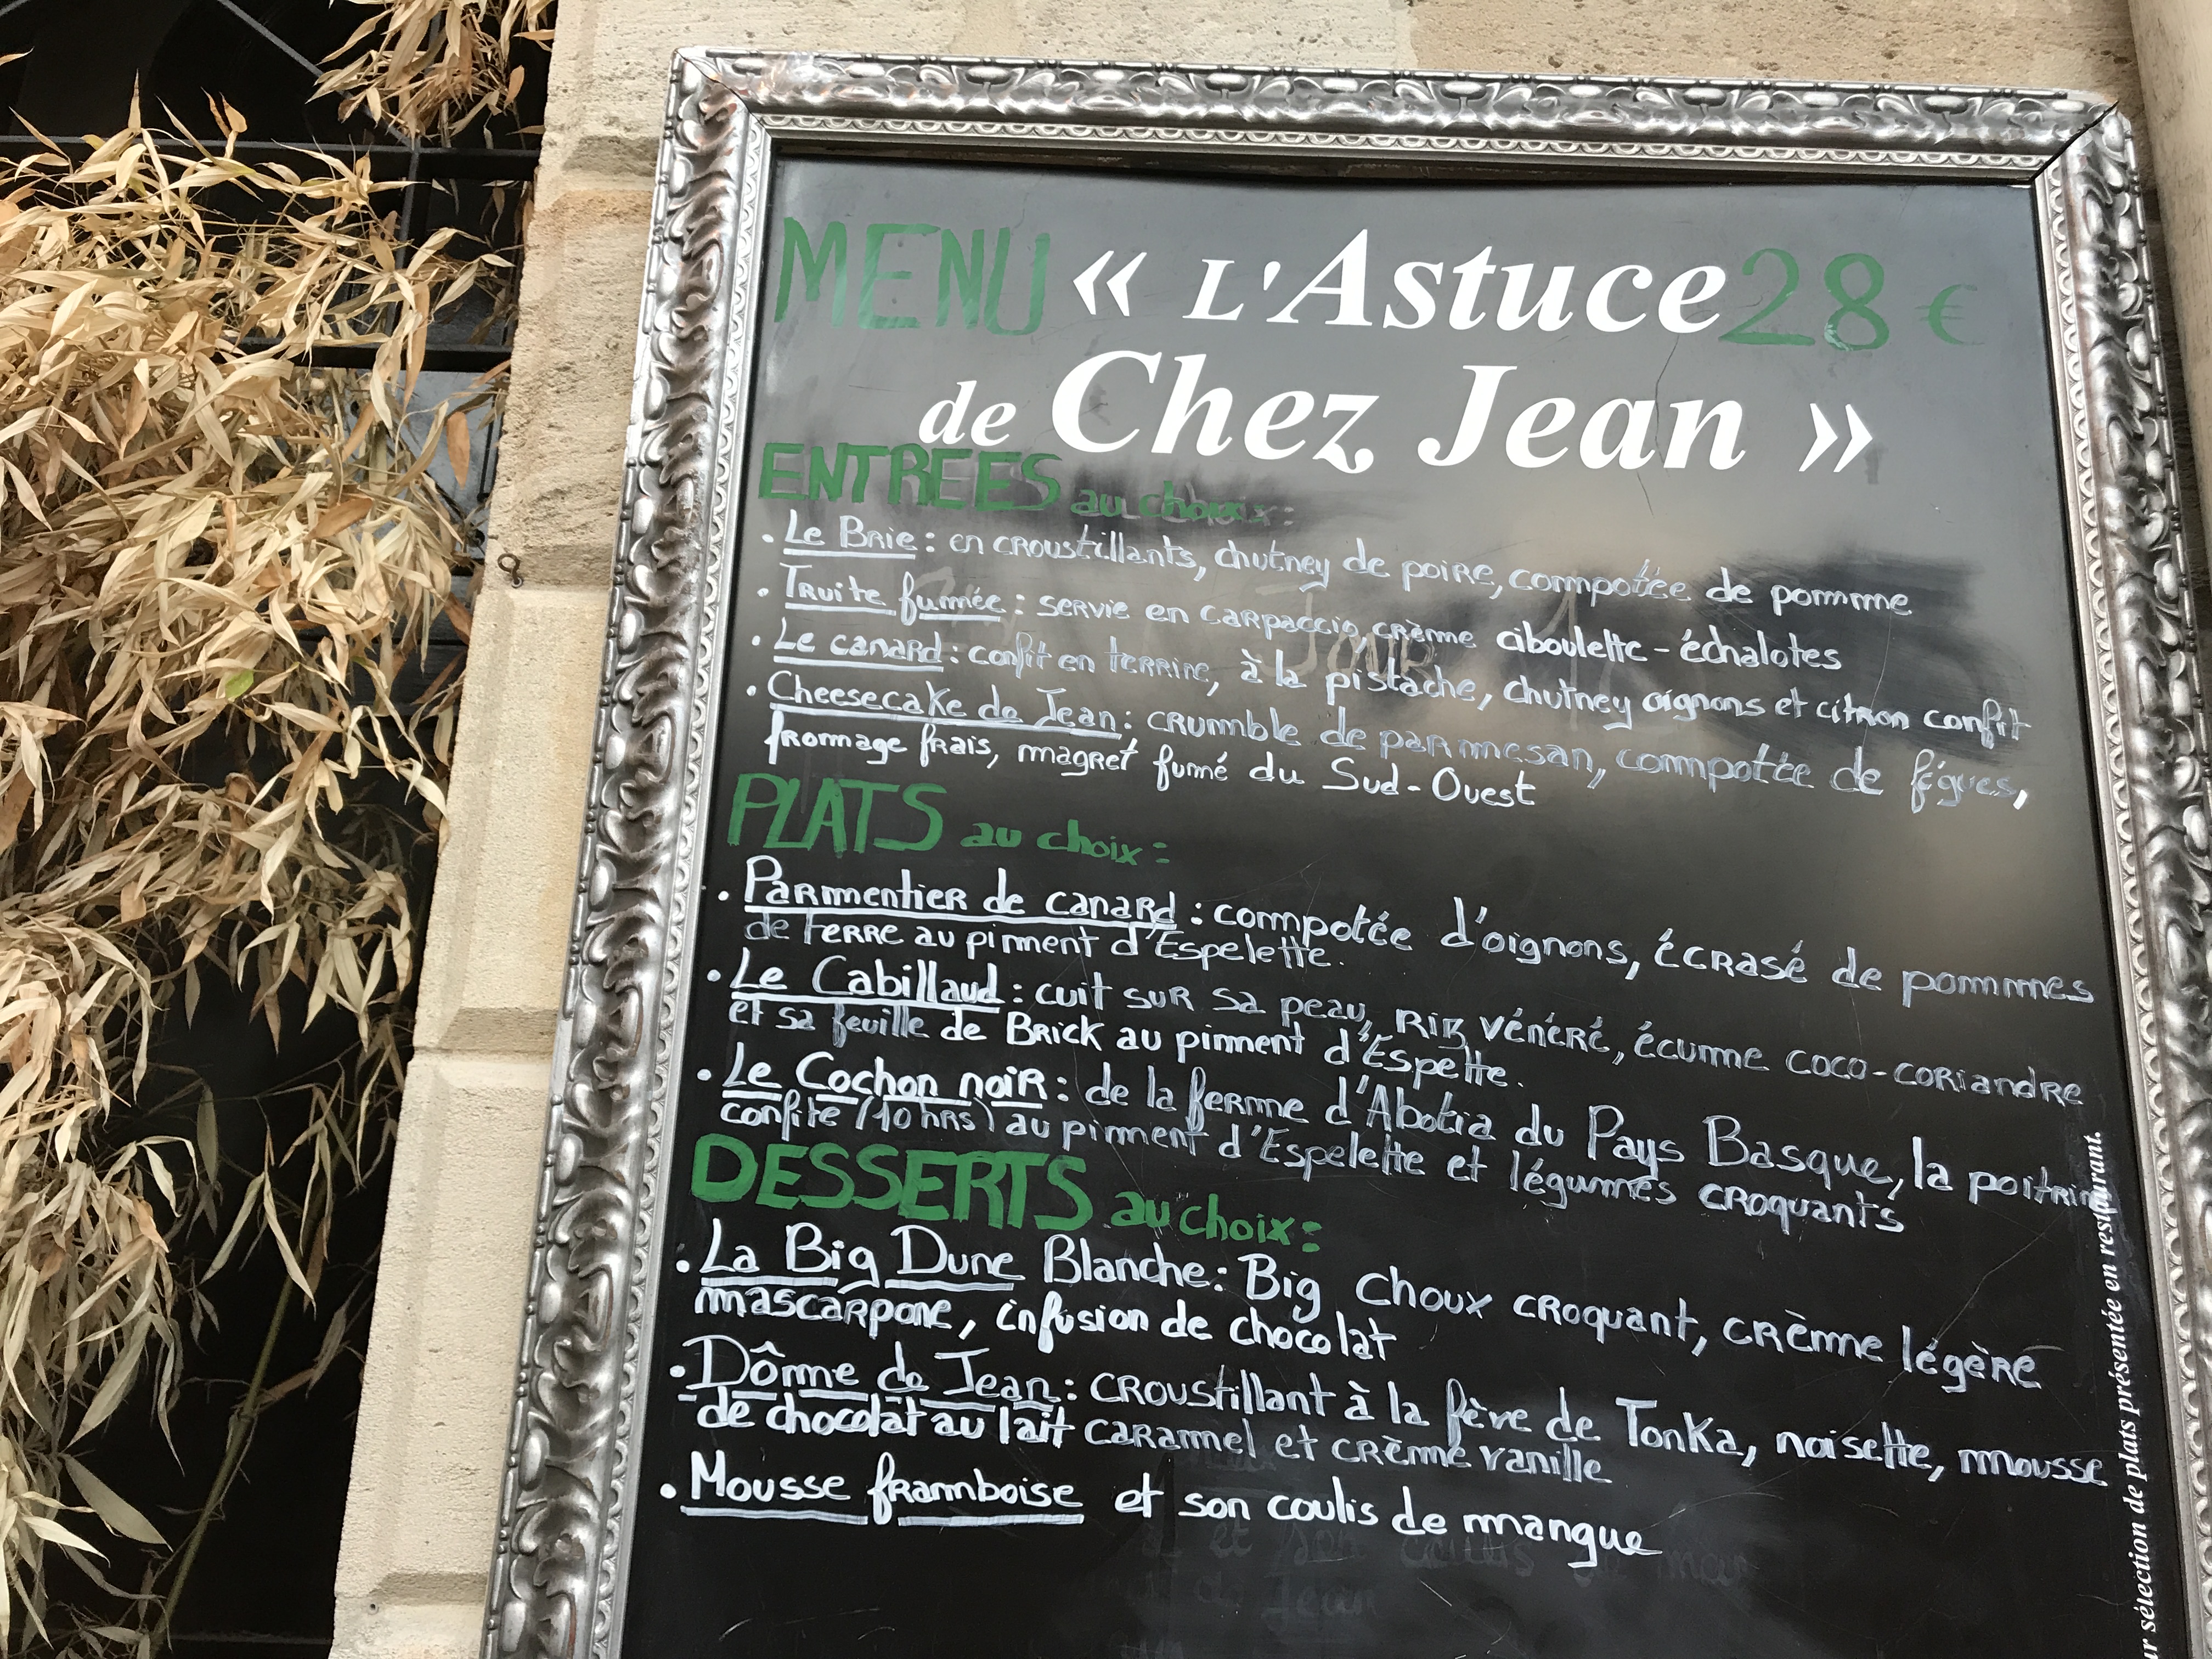 MENU « L'Astuce 28 €
de Chez Jean »
ENTREES au choix :
. Le Brie : en croustillants, chutney de poire, compotée de pomme
. Truite fumée : servie en carpaccio, crème ciboulette - échalotes
. Le canard : confit en terrine, à la pistache, chutney oignons et citron confit
. Cheesecake de Jean : crumble de parmesan, compotée de figues,
fromage frais, magret fumé du Sud-Ouest
PLATS au choix :
. Parmentier de canard : compotée d'oignons, écrasé de pommes
de terre au piment d'Espelette.
. Le Cabillaud : cuit sur sa peau, Riz vénéré, écume coco-coriandre
et sa feuille de Brick au piment d'Espette.
. Le Cochon noir : de la ferme d'Abotia du Pays Basque, la poitrine
confite (10 hrs) au piment d'Espelette et légumes croquants
DESSERTS au choix :
. La Big Dune Blanche : Big Choux croquant, crème légère
mascarpone, infusion de chocolat
. Dôme de Jean : croustillant à la fève de Tonka, noisette, mousse
de chocolat au lait caramel et crème vanille
. Mousse framboise et son coulis de mangue
sélection de plats présentée en restaurant.